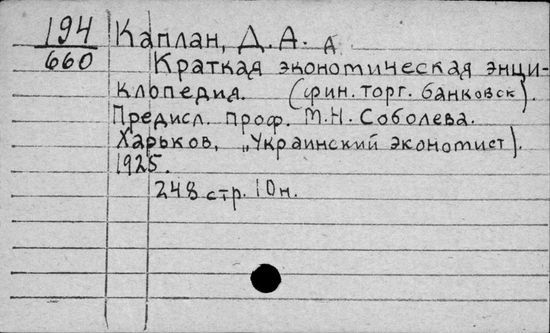 194 Каплан, Д. А. д
660 Краткая экономическая энци-
клопедия. (фин. торг. банковск).
Предисл. проф. М. Н. Соболева.
Харьков, „Украинский экономист).
1925.
248 стр. 10н.